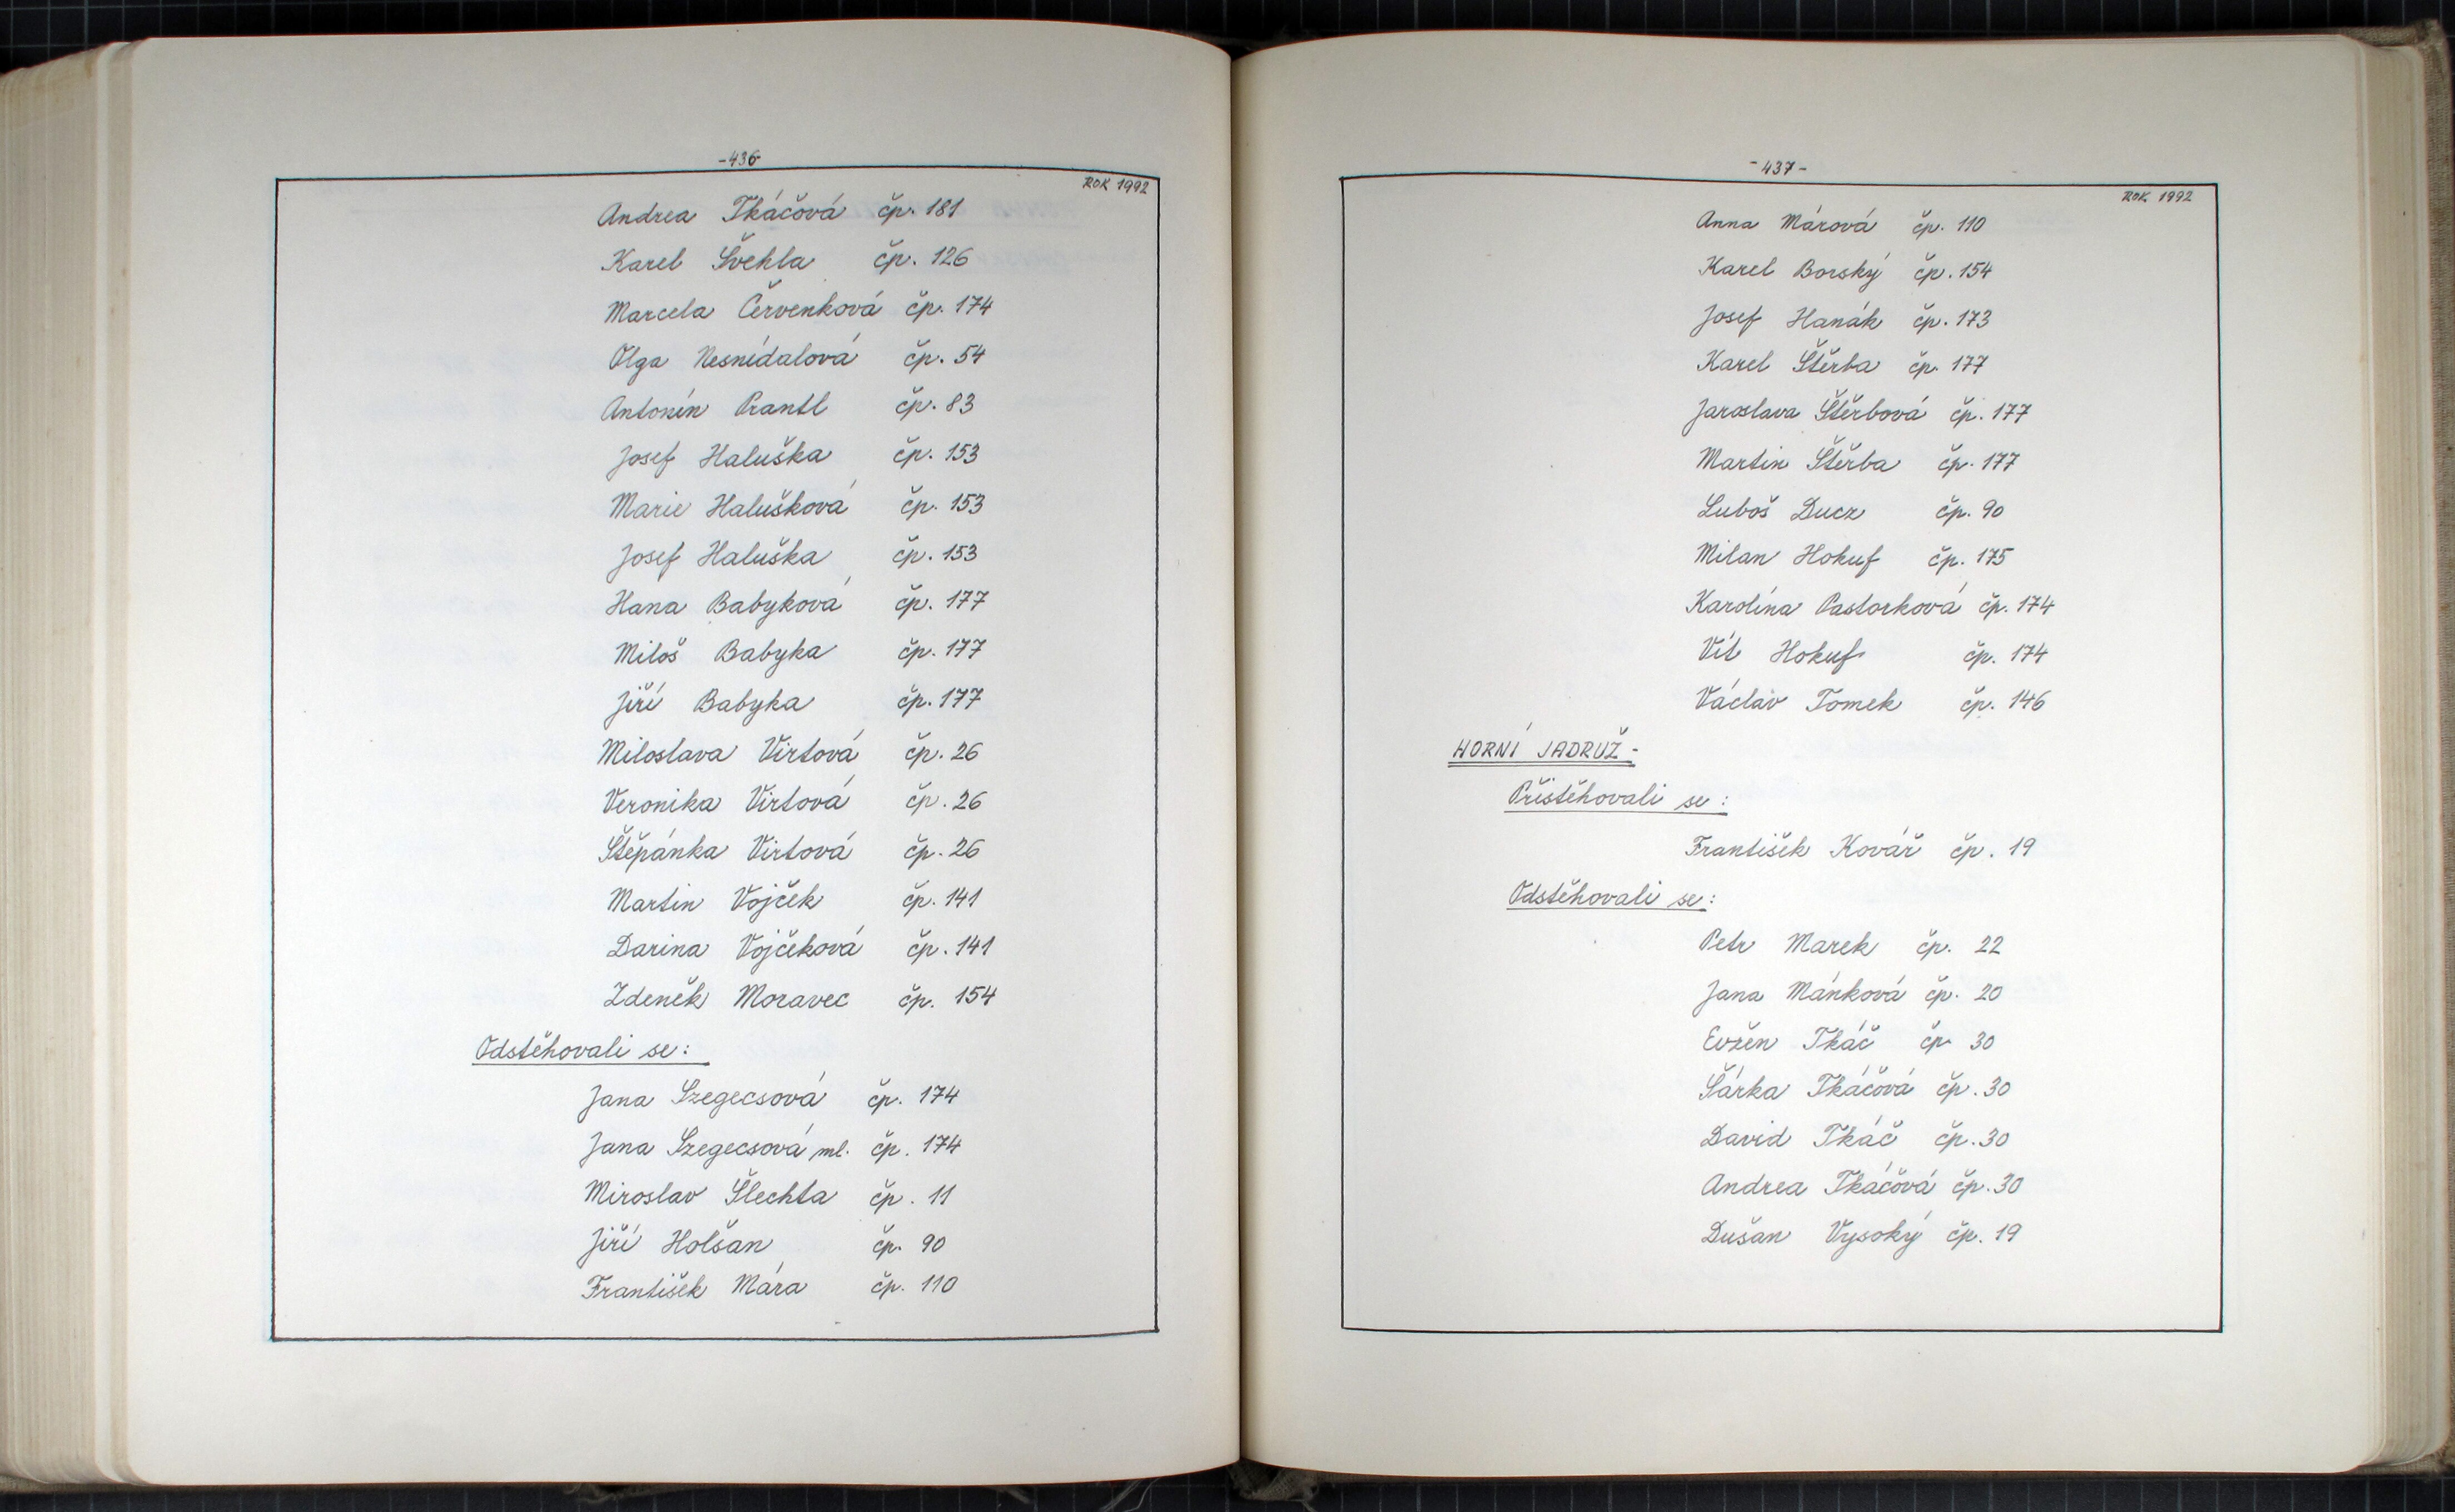 -436-
ROK 1992
Andrea Tkáčová čp. 181
Karel Švehla čp. 126
Marcela Červenková čp. 174
Olga Nesnídalová čp. 54
Antonín Prantl čp. 83
Josef Haluška čp. 153
Marie Halušková čp. 153
Josef Haluška čp. 153
Hana Babyková čp. 177
Miloš Babyka čp. 177
Jiří Babyka čp. 177
Miloslava Virtová čp. 26
Veronika Virtová čp. 26
Štěpánka Virtová čp. 26
Martin Vojček čp. 141
Darina Vojčeková čp. 141
Zdeněk Moravec čp. 154
Odstěhovali se:
Jana Szegecsová čp. 174
Jana Szegecsová ml. čp. 174
Miroslav Šlechta čp. 11
Jiří Holšan čp. 90
František Mára čp. 110
-437-
ROK 1992
Anna Márová čp. 110
Karel Borský čp. 154
Josef Hanák čp. 173
Karel Štěrba čp. 177
Jaroslava Štěrbová čp. 177
Martin Štěrba čp. 177
Luboš Ducz čp. 90
Milan Hokuf čp. 175
Karolína Pastorková čp. 174
Vít Hokuf čp. 174
Václav Tomek čp. 146
HORNÍ JADRUŽ -
Přistěhovali se:
František Kovář čp. 19
Odstěhovali se:
Petr Marek čp. 22
Jana Mánková čp. 20
Evžen Tkáč čp 30
Šárka Tkáčová čp. 30
David Tkáč čp. 30
Andrea Tkáčová čp. 30
Dušan Vysoký čp. 19